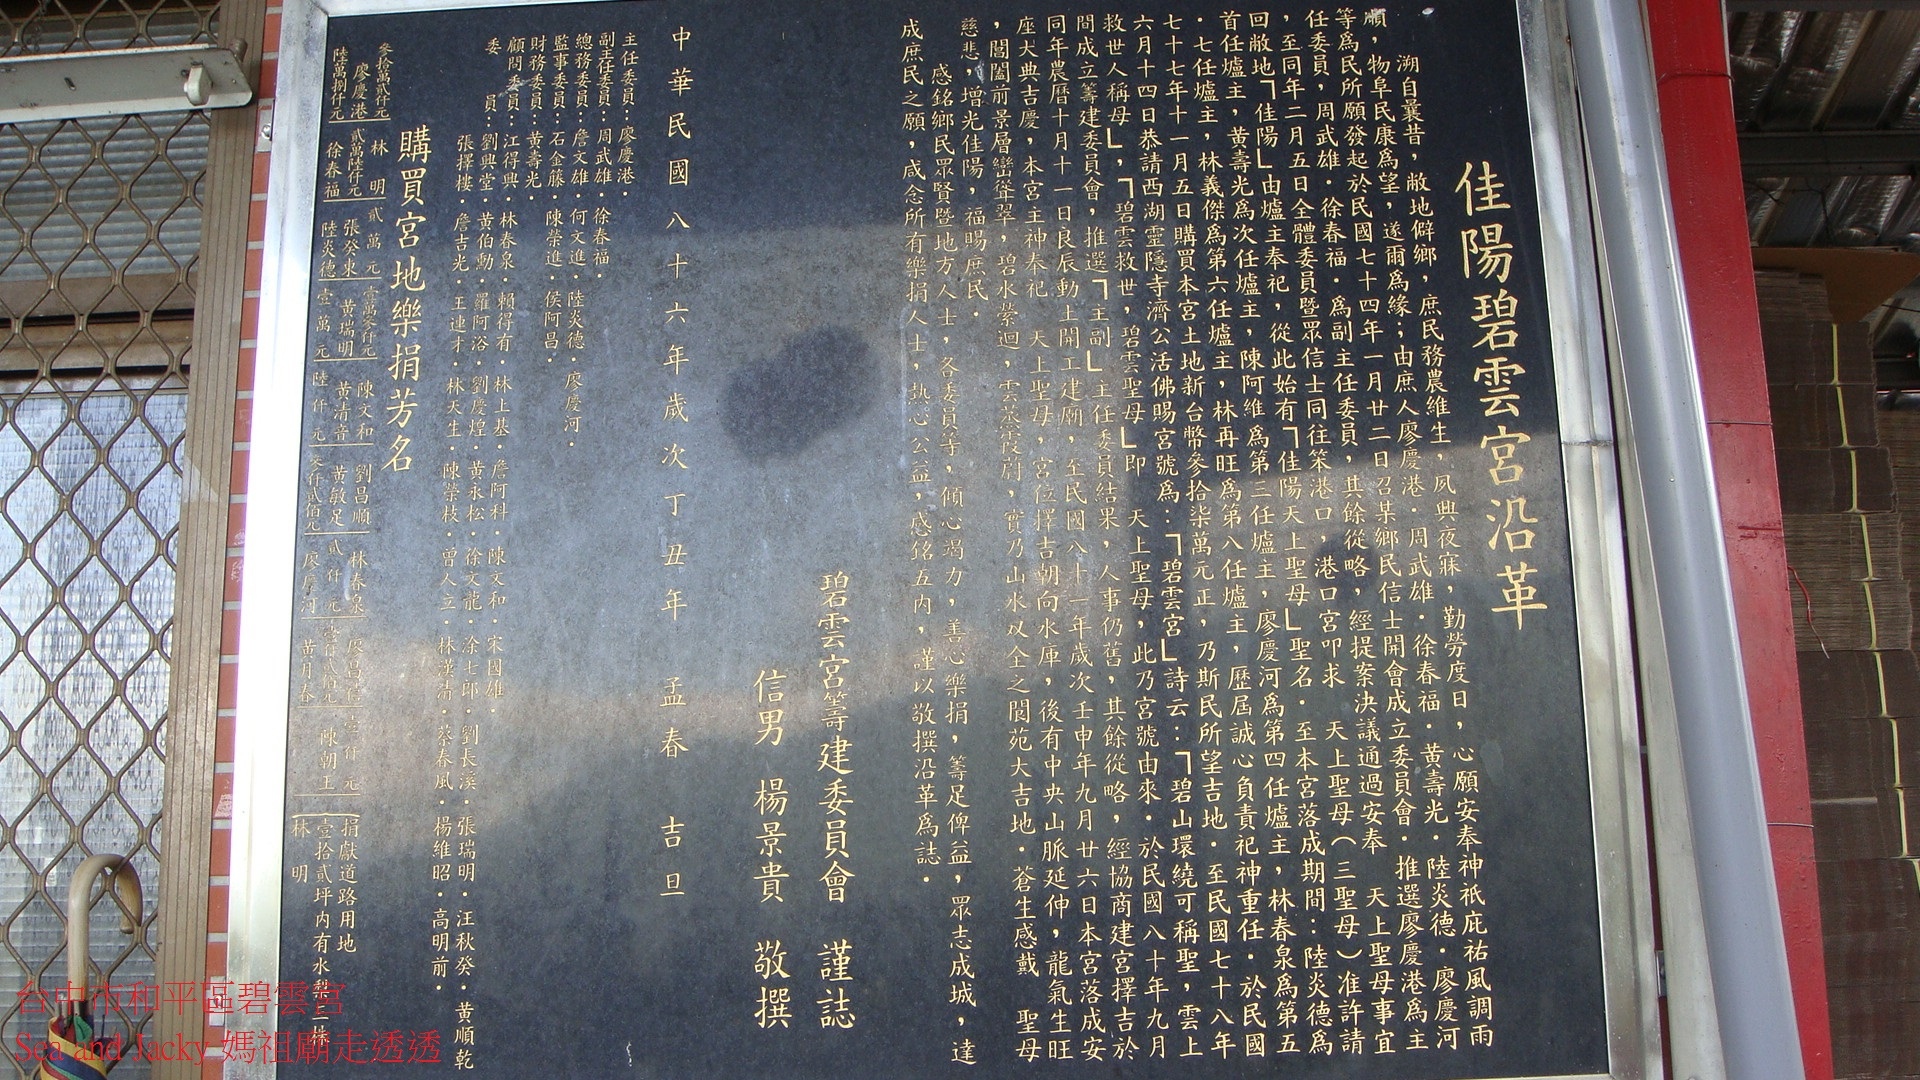 佳陽碧雲宮沿革
溯自曩昔，敝地僻鄉，庶民務農維生，夙興夜寐，勤勞度日，心願安奉神祇庇祐風調雨
順，物阜民康為望，遂爾為緣；由庶人廖慶港．周武雄．徐春福．黃壽光．陸炎德．廖慶河
等為民所願發起於民國七十四年一月廿二日召某鄉民信士開會成立委員會．推選廖慶港為主
任委員，周武雄．徐春福．為副主任委員，其餘從略，經提案決議通過安奉 天上聖母事宜
，至同年二月五日全體委員暨眾信士同往笨港口，港口宮叩求 天上聖母（三聖母）准許請
回敝地「佳陽」由爐主奉祀，從此始有「佳陽天上聖母」聖名．至本宮落成期間：陸炎德為
首任爐主，黃壽光為次任爐主，陳阿維為第三任爐主，廖慶河為第四任爐主，林春泉為第五
．七任爐主，林義傑為第六任爐主，林再旺為第八任爐主，歷屆誠心負責祀神重任．於民國
七十七年十一月五日購買本宮土地新台幣參拾柒萬元正，乃斯民所望吉地．至民國七十八年
六月十四日恭請西湖靈隱寺濟公活佛賜宮號為：「碧雲宮」詩云：「碧山環繞可稱聖，雲上
救世人稱母」，「碧雲救世，碧雲聖母」即 天上聖母，此乃宮號由來．於民國八十年九月
間成立籌建委員會，推選「主副」主任委員結果，人事仍舊，其餘從略，經協商建宮擇吉於
同年農曆十月十一日良辰動土開工建廟，至民國八十一年歲次壬申年九月廿六日本宮落成安
座大典吉慶，本宮主神奉祀 天上聖母，宮位擇吉朝向水庫，後有中央山脈延伸，龍氣生旺
，闔閶前景層巒聳翠，碧水縈迴，雲蒸霞蔚，實乃山水双全之閬苑大吉地．蒼生感戴 聖母
慈悲，增光佳陽，福賜庶民．
感銘鄉民眾賢暨地方人士，各委員等，傾心竭力，善心樂捐，籌足俾益，眾志成城，達
成庶民之願，咸念所有樂捐人士，熱心公益，感銘五內，謹以敬撰沿革為誌．
碧雲宮籌建委員會 謹誌
信男 楊景貴 敬撰
中華民國八十六年歲次丁丑年 孟春 吉旦
主任委員：廖慶港．
副主任委員：周武雄．徐春福．
總務委員：詹文雄．何文進．陸炎德．廖慶河．
監事委員：石金藤．陳榮進．侯阿昌．
財務委員：黃壽光．
顧問委員：江得興．林春泉．賴得有．林上基．詹阿科．陳文和．宋國雄．
委 員：劉興堂．黃伯勳．羅阿浴．劉慶煌．黃永松．徐文龍．涂七郎．劉長溪．張瑞明．汪秋癸．黃順乾
張擇樓．詹吉光．王連才．林天生．陳榮枝．曾人立．林漢清．蔡春風．楊維昭．高明前．
購買宮地樂捐芳名
參拾萬貳仟元
廖慶港
陸萬捌仟元
林 明
貳萬陸仟元
徐春福
貳萬元
張癸東
陸炎德
壹萬參仟元
黃瑞明
壹萬元
陳文和
黃清音
陸仟元
劉昌順
黃敏足
參仟貳佰元
林春泉
貳仟元
廖厚河
黃月春
壹仟元
陳朝王
捐獻道路用地
壹拾貳坪內有水
林 明
台中市和平區碧雲宮
Sea and Jacky 媽祖廟走透透